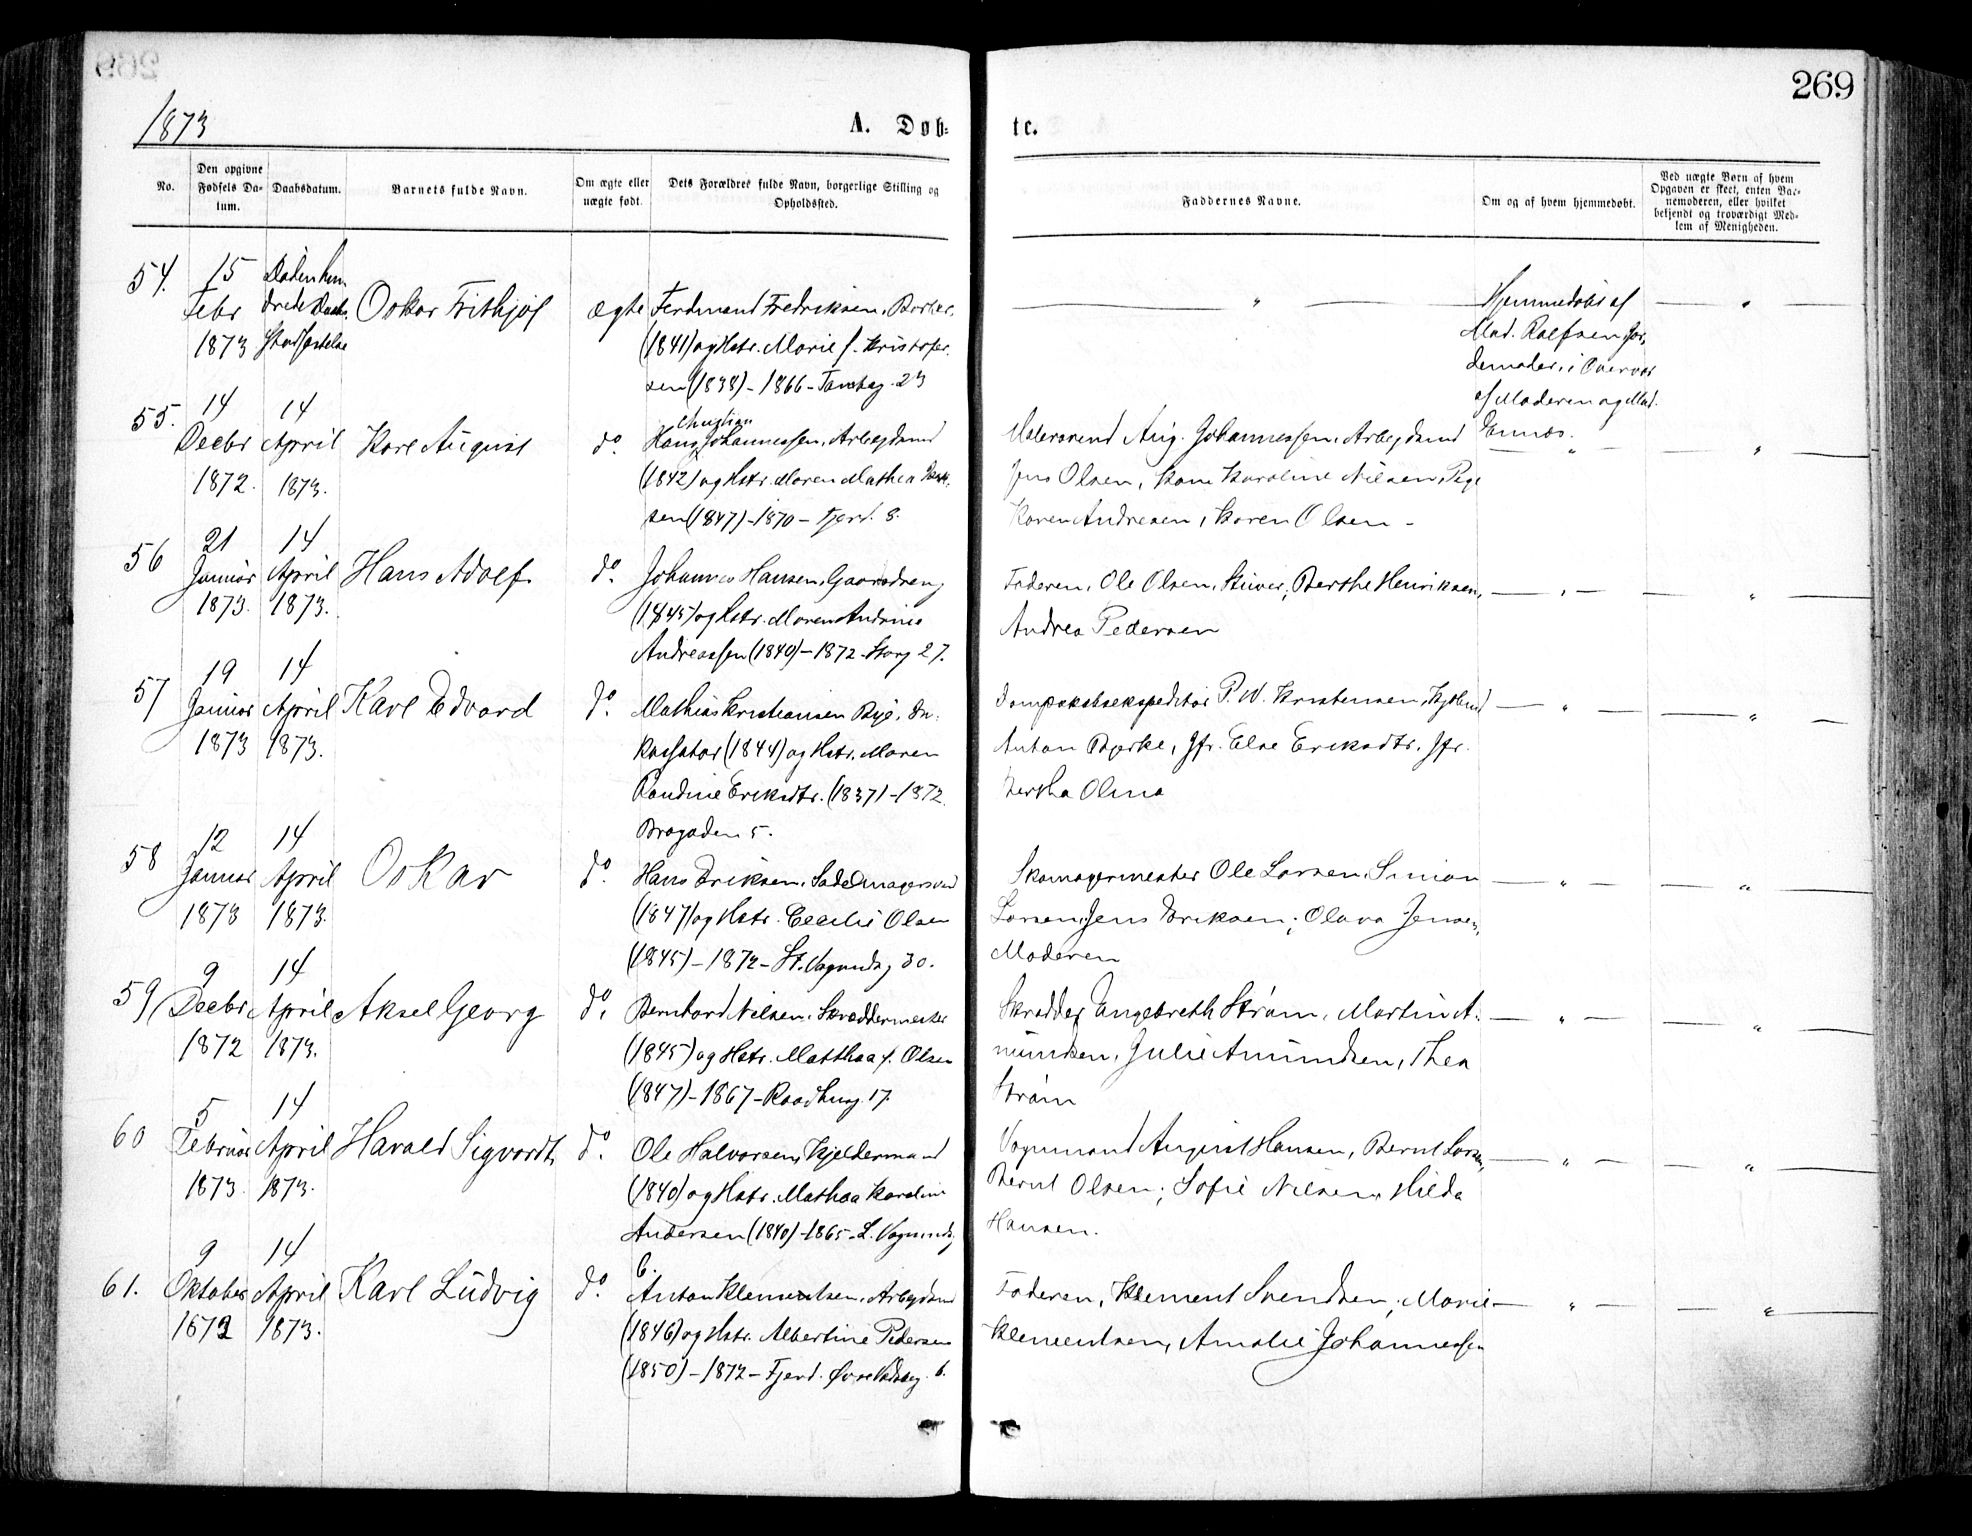 269
1873
A. Døb-
te.
No.
Den opgivne Fødsels Da-
tum.
Daabsdatum.
Barnets fulde Navn.
Om ægte eller
uægte født.
Dets Forældres fulde Navn, borgerlige Stilling og
Opholdssted.
Faddernes Navne.
Om og af hvem hjemmedøbt.
Ved uægte Børn af hvem
Opgaven er skeet, enten Bar-
nemoderen, eller hvilket
bekjendt og troværdigt Med-
lem af Menigheden.
54.
15
Febr
1873
Døden hin-
drede Daabs-
Stadfæstelse
Oskar Frithjof
ægte
Ferdinand Fredriksen,
(1841) og Hstr. Marie f. Kristofer-
sen (1838) - 1866 -
23
Hjemmedøbt af
Mad. Rolfsen Jor-
demoder, i Overvær
af Moderen og Mad.
55.
14
Decbr
1872.
14
April
1873.
Karl August
do.
Christian
Hans Johannessen, Arbeydsmd
(1842) og Hstr. Maren Mathea
sen (1847) - 1870 - Fjerd. 8.
Malersvend Aug. Johannessen, Arbeydsmd
Jens Olsen, Kone Karoline Nilsen, Pige
Karen Andresen, Karen Olsen -
56
21
Januar
1873.
14
April
1873.
Hans Adolf
do.
Johannes Hansen, Gaardsdreng
(1845) og Hstr. Maren Andrine
Andreassen (1840) - 1872 - Storg 27.
Faderen, Ole Olsen, Berthe Henriksen,
Andrea Pedersen
57
19
Januar
1873
14
April
1873.
Karl Edvard
do.
Mathias Kristiansen Bye, In-
kassator (1844) og Hstr. Maren
Randine Eriksdtr. (1837) - 1872
Brogaden 5.
Dampskibsekspeditør P. W. Kristensen,
Anton Bjerke, Jfr. Else Eriksdtr. Jfr.
Bertha Olina
58
12
Januar
1873
14
April
1873.
Oskar
do.
Hans Eriksen, Sadelmagersvd
(1847) og Hstr. Cecilie Olsen
(1845) - 1872 - St. Vognmdsg 30.
Skomagermester Ole Larsen, Simon
Larsen, Jens Eriksen; Olava Jensen,
Moderen
59
9
Decbr
1872
14
April
1873.
Aksel Georg
do.
Bernhard Nilsen, Skreddermester
(1845) og Hstr. Matthea f. Olsen
(1847) - 1867 - Raadhusg. 17.
Skredder Engebreth Strøm, Martin A-
mundsen, Julie Amundsen, Thea
Strøm
60
5
Februar
1873.
14
April
1873.
Harald Sigvardt
do.
Ole Halvorsen, Kjeldermand
(1840) og Hstr. Mathea Karoline
Andersen (1840) - 1865 - L. Vognmdsg
6.
Vognmand August Hansen, Bernt Larsen,
Bernt Olsen; Sofie Nilsen, Hilda
Hansen.
61.
9
Oktober
1872
14
April
1873.
Karl Ludvig
do.
Anton Klementsen, Arbeydsmd
(1846) og Hstr. Albertine Pedersen
(1850) - 1872 - Fjerd. Øvre 6.
Faderen, Klement Svendsen; Marie
Klementsen, Amalie Johannessen